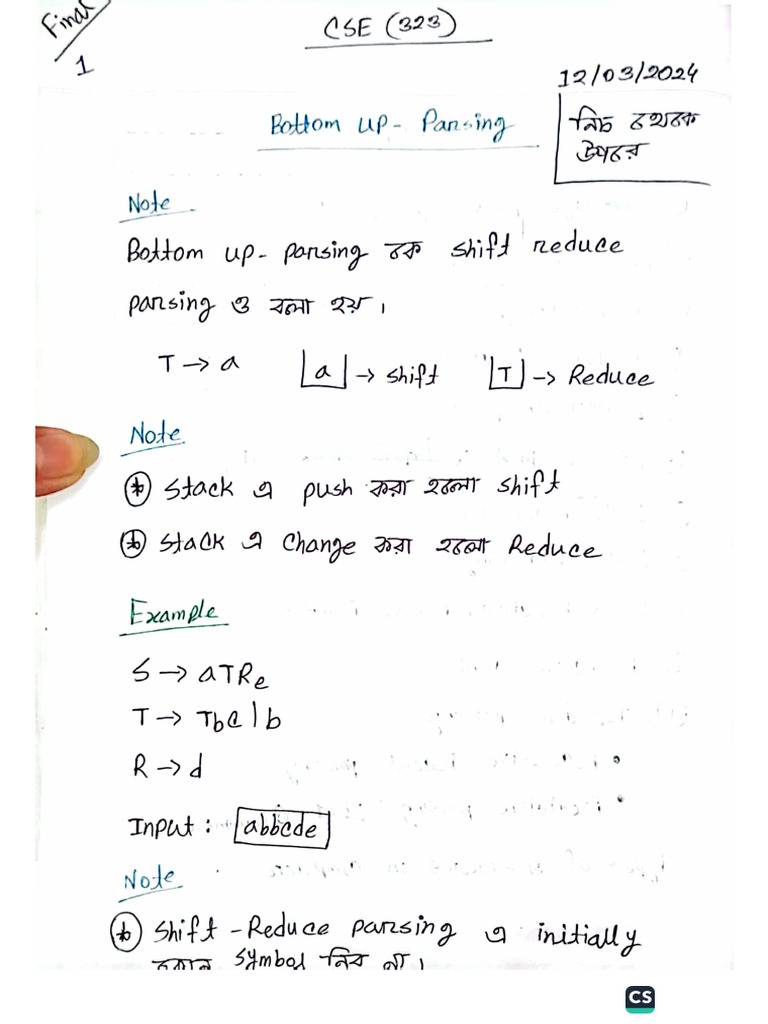 Final
1
CSE (323)
12/03/2024
Bottom up - Parsing
নিচ থেকে
উপরে
Note
Bottom up - parsing কে shift reduce
parsing ও বলা হয়।
T → a a → shift T → Reduce
Note
* Stack এ push করা হলো shift
* Stack এ Change করা হলো Reduce
Example
S → aTRe
T → Tbc | b
R → d
Input : abbcde
Note
* Shift - Reduce parsing এ initially
কোন symbol নিব না।
CS